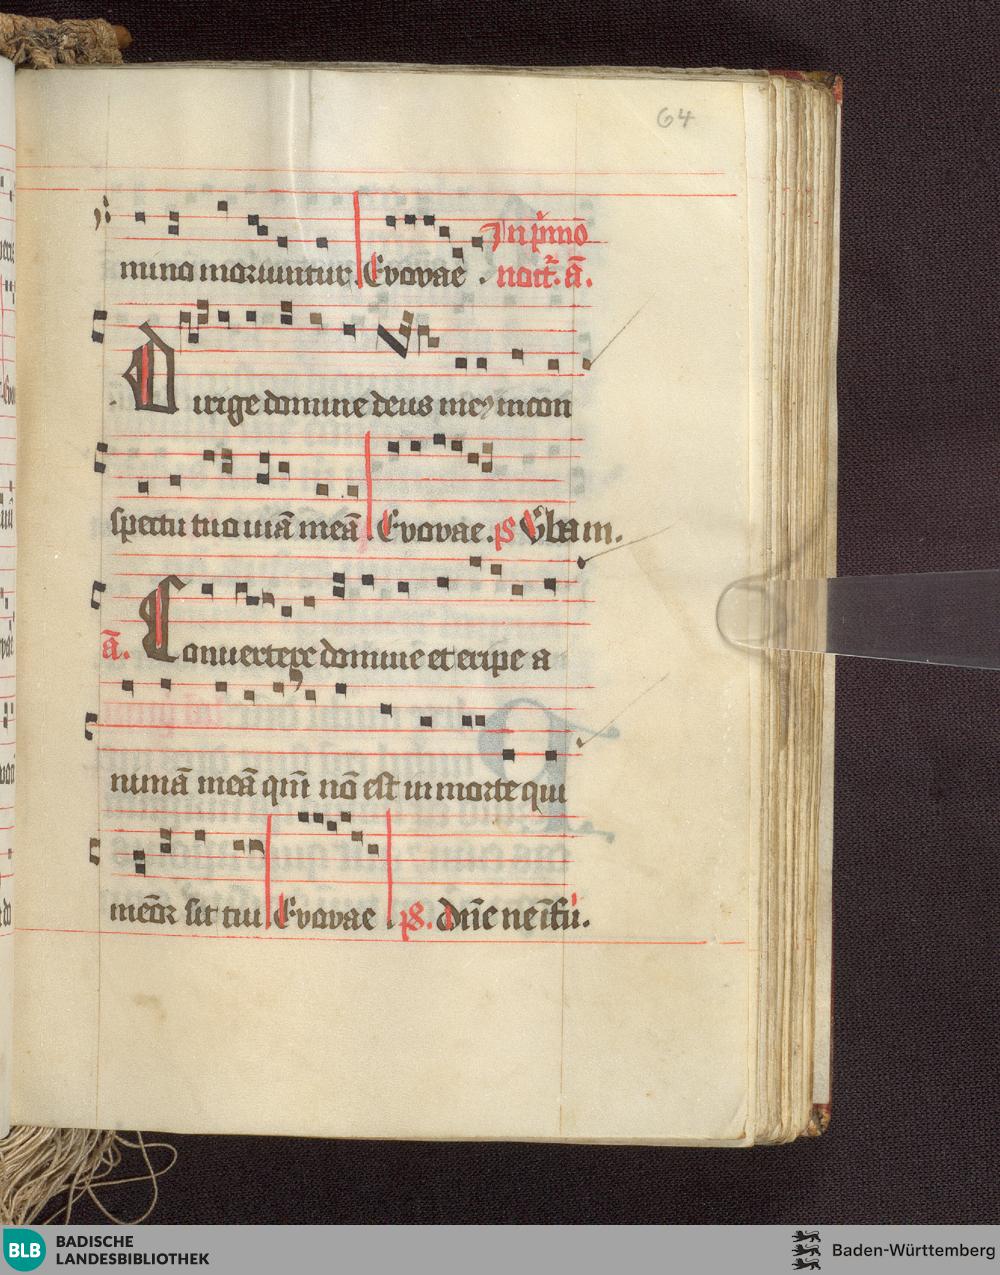 64
mino moriuntur. Evovae. In p̄mo
noct. a̅.
Dirige domine deus meꝯ in con
spectu tuo uiā meā. Evovae. ps Vba m.
a̅. Convertere domine et eripe a
nimā meā qm̄ nō est in morte qui
meōr sit tui Evovae. ps. Dn̄e ne ī fu.
BLB BADISCHE
LANDESBIBLIOTHEK
Baden-Württemberg